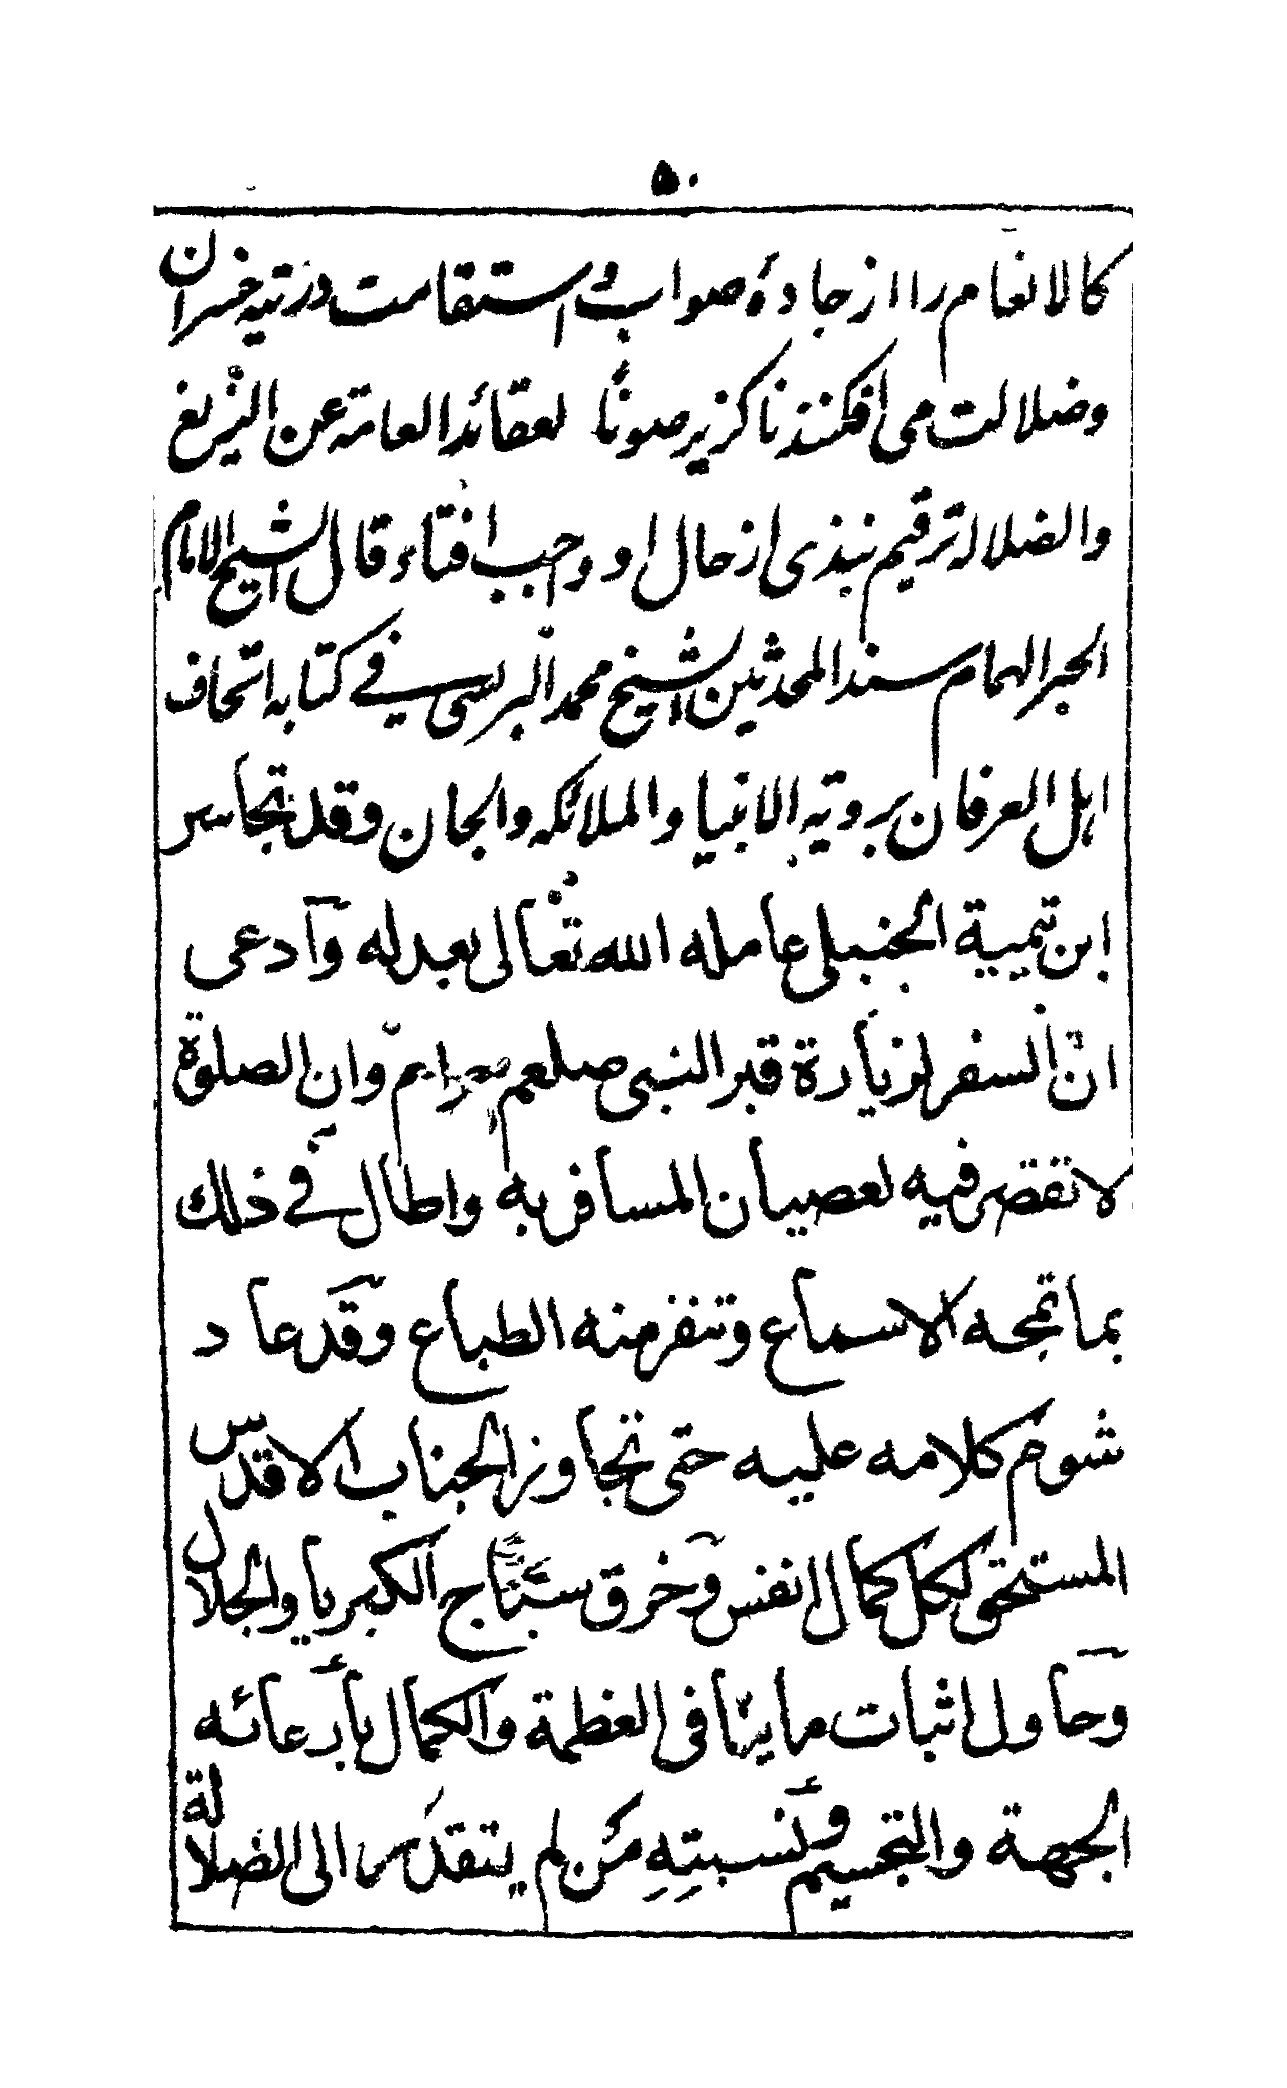 ۵۰
كالانعام را از جادهٔ صواب و استقامت در تیه خسران
وضلالت می افکنند ناگزیر صونًا لعقائد العامة عن الزیغ
والضلالة ترقیم نبذی از حال او واجب افتاء قال الشیخ الامام
الحبر الهمام سند المحدثین الشیخ محمد البرلسی فی کتابه اتحاف
اهل العرفان برویة الانبیا والملائکه والجان وقد تجاسر
ابن تیمیة الحنبلی عامله الله تعالی بعدله وادعی
ان السفر لزیارة قبر النبی صلعم حرام وان الصلوة
لا تقصر فیه لعصیان المسافر به واطال فی ذلك
بما تمجه الاسماع وتنفر منه الطباع وقد عاد
شوم کلامه علیه حتی تجاوز الجناب الاقدس
المستحق لکل کمال انفس وخرق سیاج الکبریا والجلال
وحاول اثبات ما ینافی العظمة والکمال بادعائه
الجهة والتجسیم ونسبتِهِ مَن لم یتقدس الی الضلالة